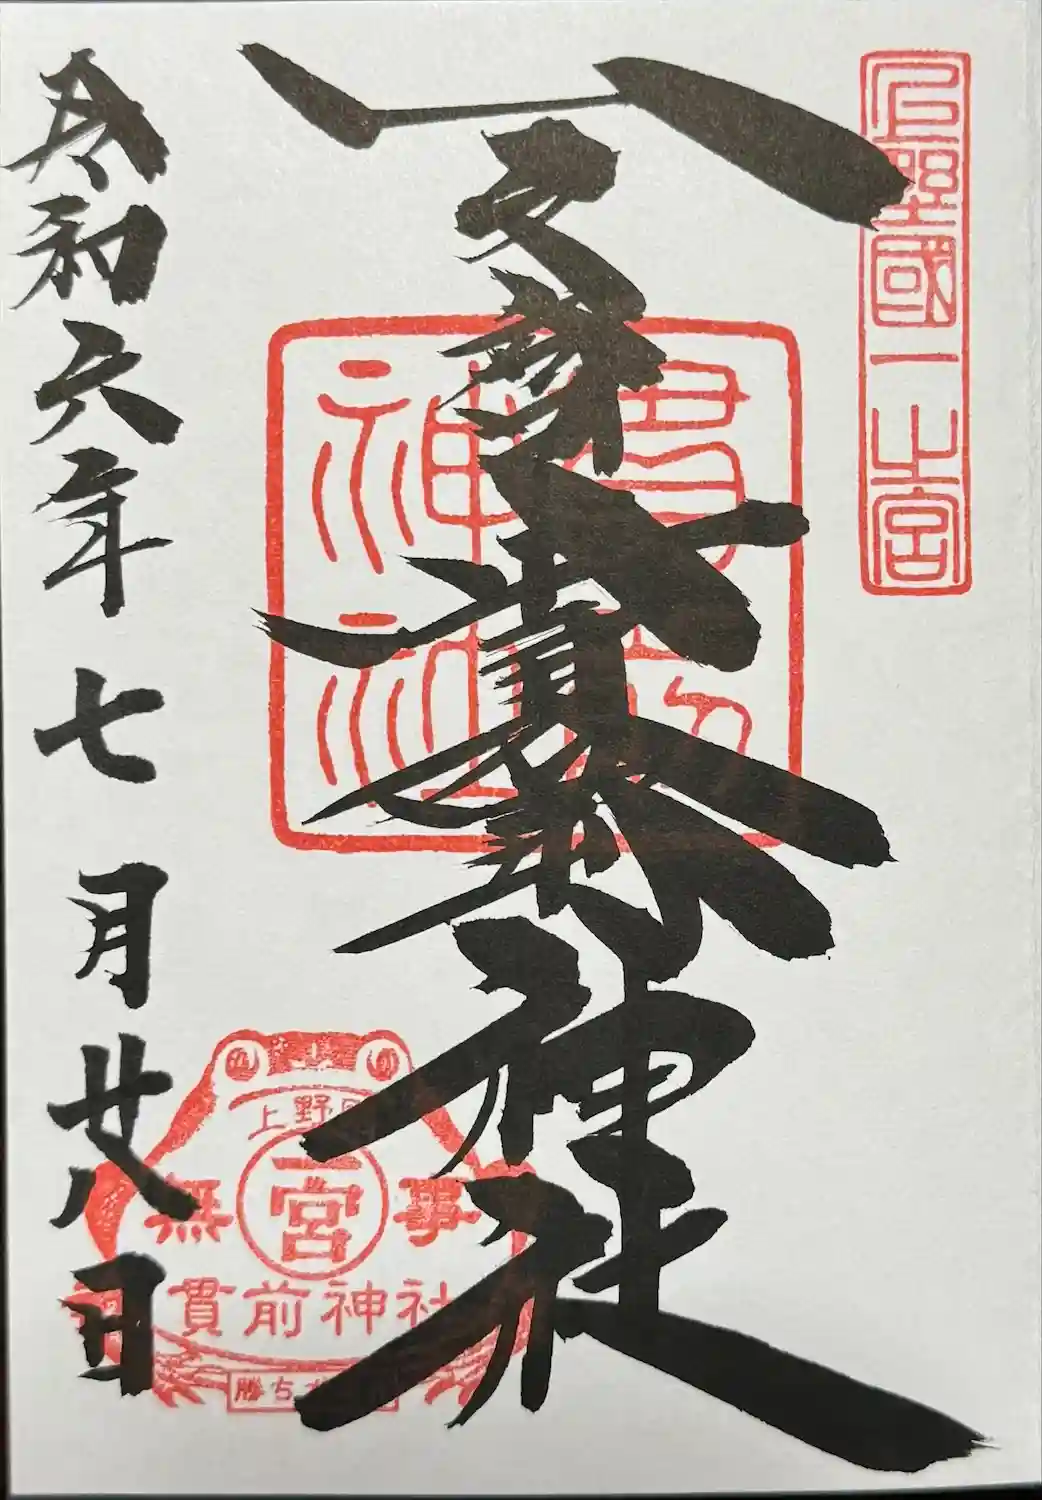 上野國一之宮
貫前神社
貫前
神社
令和六年七月廿八日
上野
無事
一宮
貫前神社
勝ち